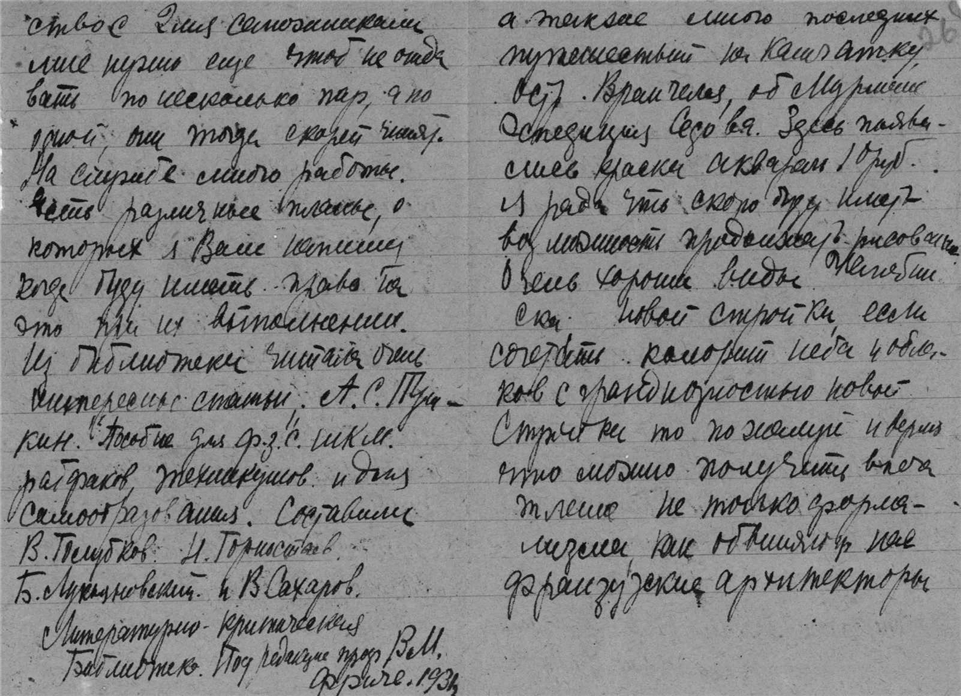 ство с 2мя самозаписками
мне нужно еще чтоб не отда
вать по несколько пар, а по
одной, они тогда скорей
На спирте много работы.
Есть различные планы, о
которых я Вам напишу
когда буду иметь право на
это при их выполнении.
Из библиотеки читала очень
интересные статьи: А.С. Пуш-
кин. "Пособие для ф.з.с. шкм.
рабфаков, техникумов и для
самообразования. Составили
В. Голубков. Н. Горностаев.
Б. Лукьяновский. и В. Сахаров.
Литературно-критическая
Библиотека. Под редакцие проф. В.М.
Фриче. 193
26
а также много последних
путешествий на Камчатку,
Остр. Врангеля, об
Экспедиция Седова. Здесь появи-
лись краски акварель 10 руб.
я рада что скоро буду иметь
возможность продолжать рисование
Очень хороши виды Челябин
ска, новой стройки, если
сочетать колорит неба и обла-
ков с грандиозностью новой
Стройки то пожалуй и верно
что можно получить
не только форма-
лизма, как обвиняют нас
французские архитекторы